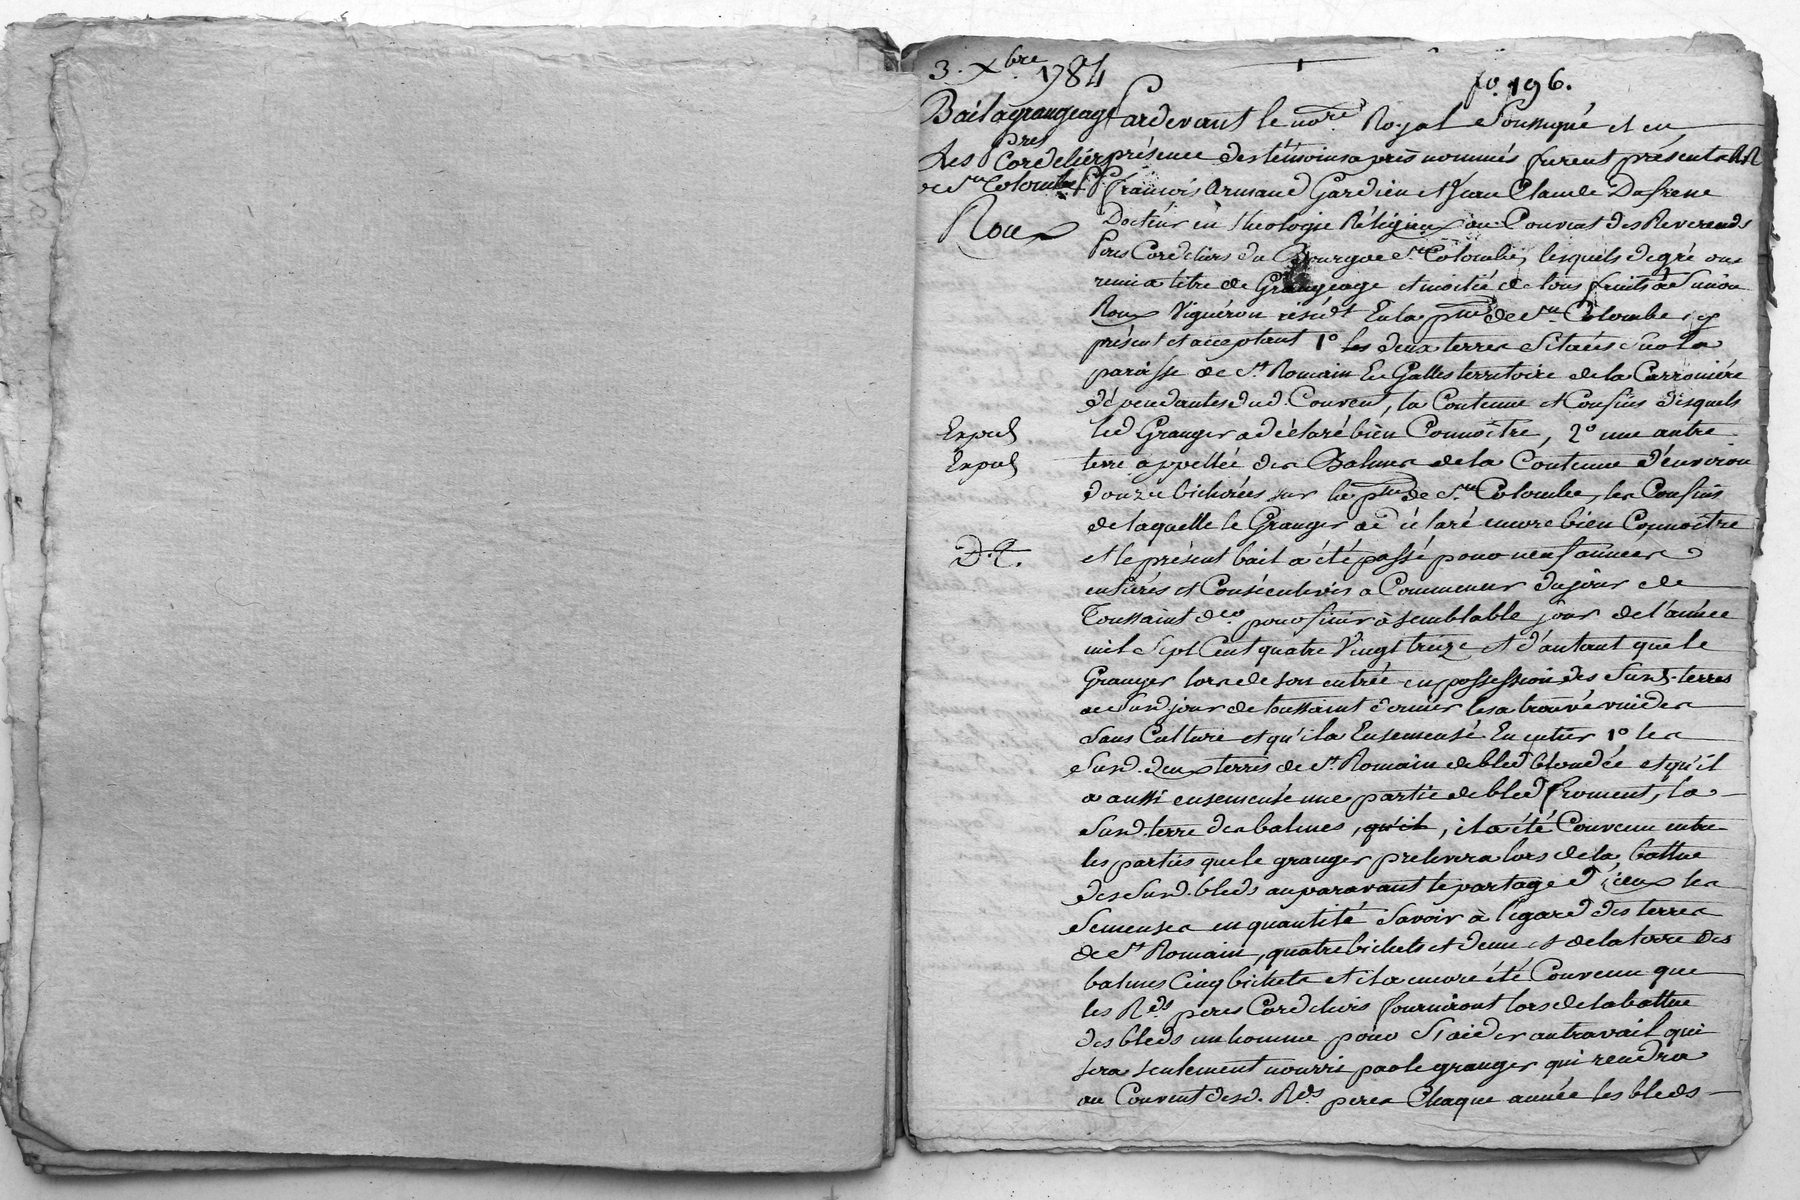 3. Xbre 1784
fo. 196.
Bail a grangeage
Les pres Cordeliers
de Ste Colombe
Roux
Pardevant le nore Royal Soussigné et en
présence des témoins après nommés furent présents RR
PP françois Armand Gardien et Jean Claude Dafrene
Docteur en Theologie Réligieux au Couvent des Reverends
Peres Cordeliers du Bourg de Ste Colombe, lesquels de gré ont
remis a titre de Grangeage et moitié de tous fruits à Simon
Roux Vigneron résidt En la psse de Ste Colombe icy
présent et acceptant 1o les deux terres Situées Sur la
paroisse de St Romain En Galles territoire de la Carroniére
dépendantes dud. Couvent, la Contenue et Confins desquels
Exped
led Granger a déclaré bien Connoitre, 2o une autre
Exped
terre appellée des Balmes de la Contenue d'environ
douze bicherées sur la psse de Ste Colombe, les Confins
de laquelle le Granger a déclaré encore bien Connoitre
D. T.
et le présent bail a été passé pour neuf années
entieres et Consécutives a Commencer du jour de
Toussaint der pour finir à semblable jour de l'année
mil Sept Cent quatre Vingt treize et d'autant que le
Granger lors de son entrée en possession des Susd. terres
au Susd. jour de toussaint dernier les a trouvé vuides
Sans Culture et qu'il a Ensemensé En entier 1o les
Susd. deux terres de St Romain de bled blondée et qu'il
a aussi ensemensé une partie de bled froment, la
Susd. terre des balmes, qu'il, il a été Convenu entre
les parties que le granger prelevera lors de la battue
des Susd. bleds auparavant le partage d'iceux les
Semenses en quantité Savoir à l'égard des terres
de St Romain, quatre bichets et demi et de la terre des
balmes Cinq bichets et il a encore été Convenu que
les Rds peres Cordeliers fourniront lors de la battue
des bleds un homme pour S'aider au travail qui
sera seulement nourri par le granger qui rendra
au Couvent desd. Rds peres Chaque année les bleds